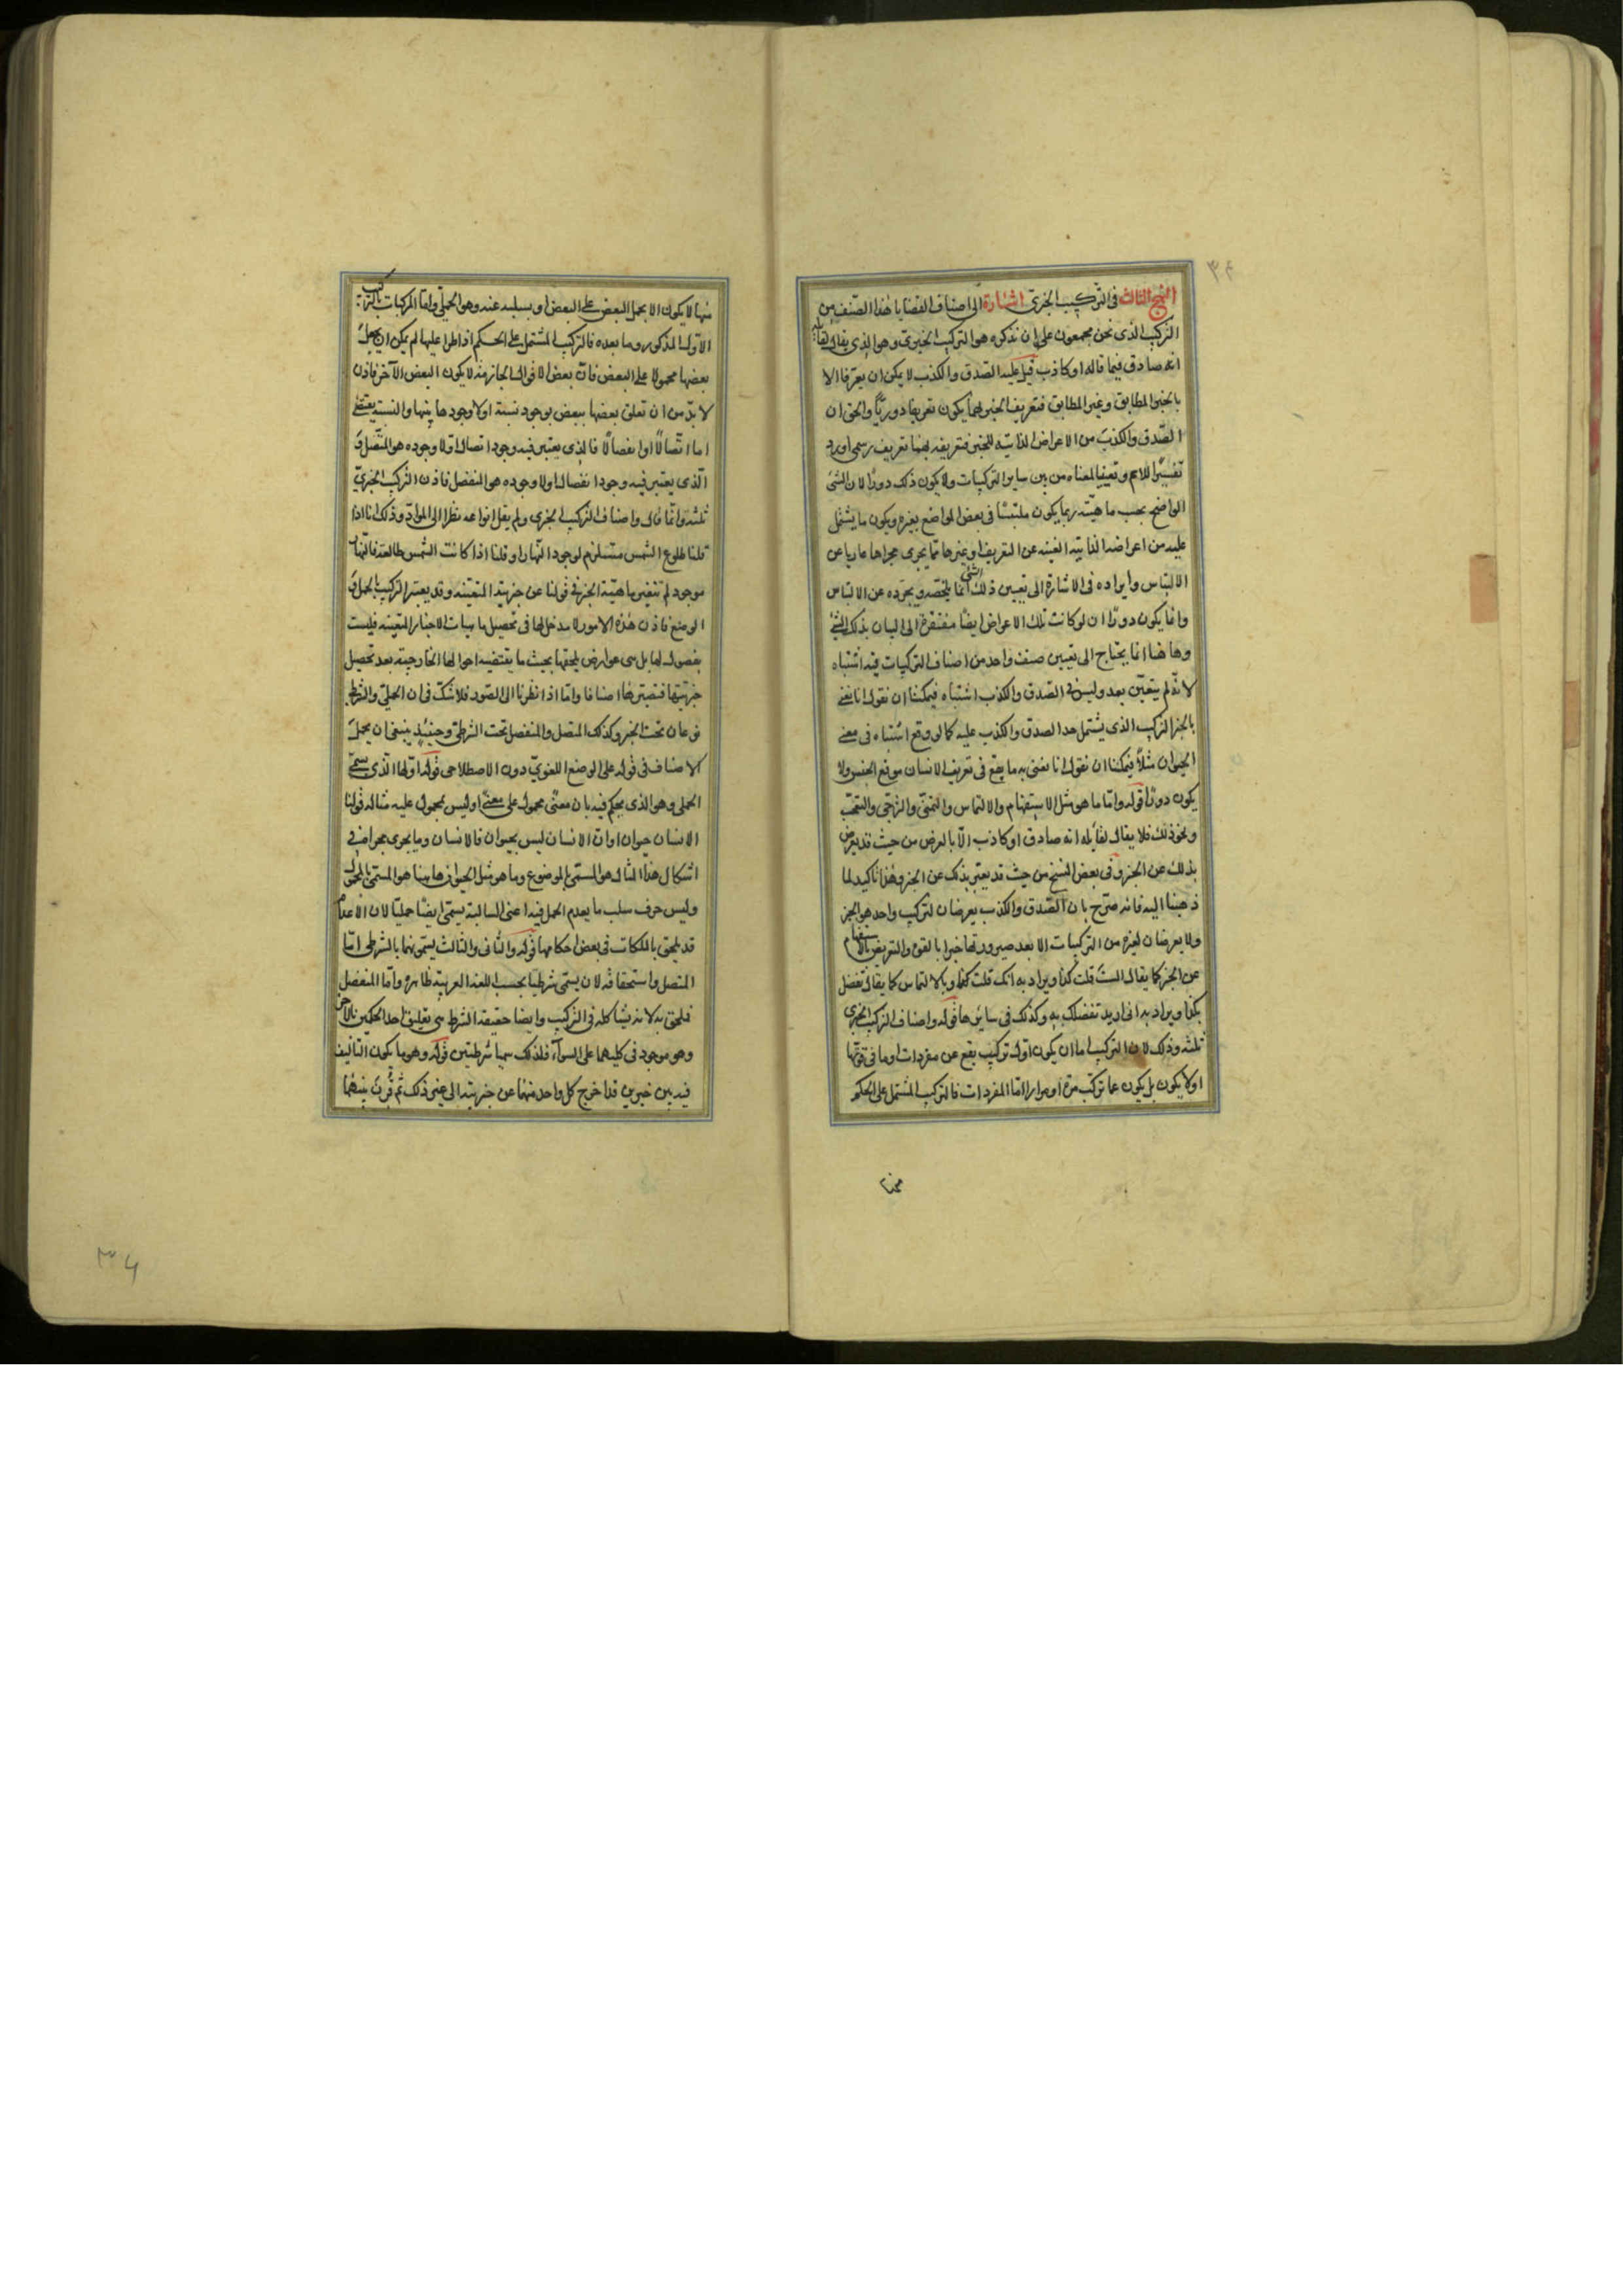 ٣٤
النهج الثالث فى التركيب الخبرى اشارة الى اصناف القضايا هذا الصنف من
التركيب الذى نحن مجمعون على ان نذكره هو التركيب الخبرى وهو الذى يقال لقائله
انه صادق فيما قاله او كاذب قيل عليه الصدق والكذب لا يمكن ان يعرفا الا
بالخبر المطابق وغير المطابق فتعريف الخبر بهما يكون تعريفا دوريّا والحق ان
الصدق والكذب من الاعراض الذاتية للخبر فتعريفه بهما تعريف رسمى اورد
تفسيرًا للاسم وتعيينا لمعناه من بين ساير التركيبات ولا يكون ذلك دورًا لان الشئ
الواضح بحسب ماهيّته ربما يكون ملتبسًا فى بعض المواضع بغيره ويكون ما يشتمل
عليه من اعراضه الذاتية الغنية عن التعريف او غيرها ممّا يجرى مجراها عاريا عن
الالتباس وايراده فى الاشارة الى تعيين ذلك الشئ انما يلخّصه ويجرّده عن الالتباس
وانما يكون دورًا ان لو كانت تلك الاعراض ايضًا مفتقرة الى البيان بذلك الشئ
وهاهنا انما يحتاج الى تعيين صنف واحد من اصناف التركيبات فيه اشتباه
لانه لم يتعيّن بعد وليس فى الصدق والكذب اشتباه فيمكننا ان نقول انا نعنى
بالخبر التركيب الذى يشتمل حد الصدق والكذب عليه كما لو وقع اشتباه فى معنى
الحيوان مثلًا فيمكننا ان نقول انا نعنى به ما يقع فى تعريف الانسان موقع الجنس ولا
يكون دورًا قوله واما ما هو مثل الاستفهام والالتماس والتمنى والترجى والتعجب
ونحو ذلك فلا يقال لقايله انه صادق او كاذب الّا بالعرض من حيث قد يعرض
بذلك عن الخبر وفى بعض النسخ من حيث قد يعبّر بذلك عن الخبر وهذا تاكيد لما
ذهبنا اليه فانه صرّح بان الصّدق والكذب يعرضان لتركيب واحد هو الخبر
ولا يعرضان لغيره من التركيبات الا بعد صيرورتها خبرا بالقوة والتعريض بالاستفهام
عن الخبر كما يقال الست قلت كذا ويراد به انك قلت كذا وبالالتماس كما يقال تفضل
بكذا ويراد به انى اريد تفضلك به وكذلك فى سايرها قوله واصناف التركيب الخبرى
ثلثة وذلك لان التركيب اما ان يكون اول تركيب يقع عن مفردات او ما فى قوتها
اولا يكون بل يكون عما تركب مرّة او مرارا اما المفردات فالتركيب المشتمل على الحكم
منها
منها لا يكون الا بحمل البعض على البعض او بسلبه عنه وهو الحملى واما المركبات بالتركيب
الاول المذكور وما بعده فالتركيب المشتمل على الحكم اذا طرا عليها لم يمكن ان يجعل
بعضها محمولا على البعض فان بعض الاقوال الجازمة لا يكون البعض الآخر فاذن
لا بدّ من ان تعلق بعضها ببعض بوجود نسبة او لا وجودها بينها والنسبة يقتضى
اما اتّصالًا او انفصالًا فالذى يعتبر فيه وجود اتصال او لا وجوده هو المتّصل و
الّذى يعتبر فيه وجود انفصال او لا وجوده هو المنفصل فاذن التركيب الخبرىّ
ثلثة وانما قال واصناف التركيب الخبرى ولم يقل انواعه نظرا الى الموادّ وذلك انا اذا
قلنا طلوع الشمس مستلزم لوجود النّهار او قلنا اذا كانت الشمس طالعة فالنهار
موجود لم تتغير ماهيّة الخبر فى قولنا عن خبريته المتعيّنة وقد يعتبر التركيب بالحمل و
الوضع فاذن هذه الامور لا مدخل لها فى تحصيل ماهيات الاخبار المتعينة فليست
بفصول لها بل هى عوارض يلحقها بحيث ما يقتضيه احوالها الخارجية بعد تحصيل
خبريتها فتصيّرها اصنافا واما اذا نظرنا الى الصّور فلا شكّ فى ان الحملىّ والشرطى
نوعان تحت الخبر وكذلك المتصل والمنفصل تحت الشرطى وحينئذٍ ينبغى ان يحمل
الاصناف فى قوله على الوضع اللغوىّ دون الاصطلاحى قوله اولها الذى يسمّى
الحملى وهو الذى يحكم فيه بان معنًى محمول على معنًى او ليس بمحمول عليه مثاله قولنا
الانسان حيوان او ان الانسان ليس بحيوان فالانسان وما يجرى مجراه فى
اشكال هذا المثال هو المسمّى بالموضوع وما هو مثل الحيوان هاهنا هو المسمّى بالمحمول
وليس حرف سلب ما يعدم الحمل فيه اعنى السالبة يسمّى ايضًا حمليّا لان الاعدام
قد يلحق بالملكات فى بعض احكامها قوله والثانى والثالث يسمّونهما بالشرطى امّا
المتصل واستحقاقه لان يسمّى شرطيا بحسب اللغة العربية ظاهرة واما المنفصل
فلحق به لانه يشاكله فى التركيب وايضا حقيقة الشرط هى تعليق احد الحكمين بالاخر
وهو موجود فى كليهما على السوآء فلذلك سميا شرطيتين قوله وهو ما يكون التاليف
فيه بين خبرين قد اخرج كل واحد منهما عن خبريته الى غير ذلك ثم قُرن بينهما
٣٤